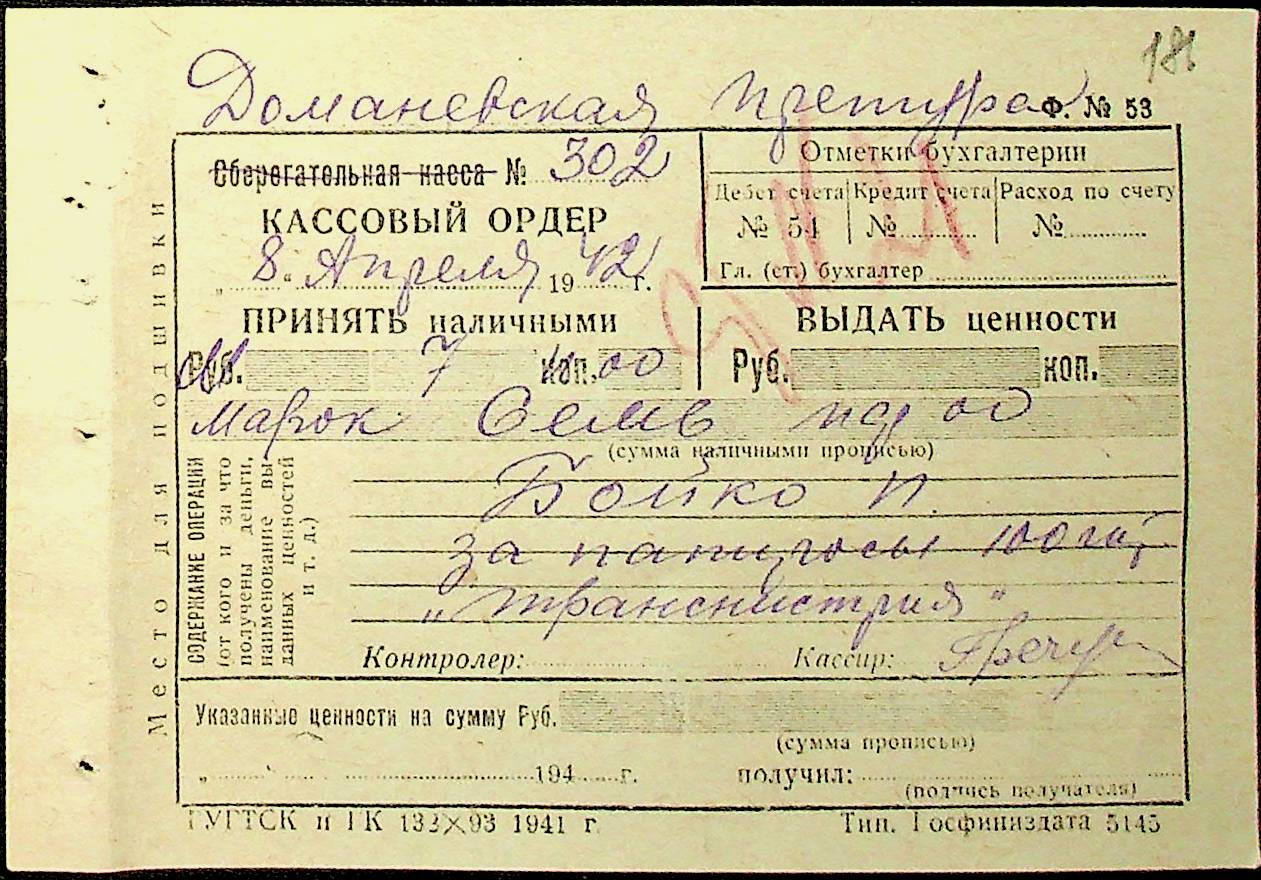 181
Доманевская претура Ф. № 53
Сберегательная касса № 302
КАССОВЫЙ ОРДЕР
„ 8 " Апреля 1942 г.
Отметки бухгалтерии
Дебет счета Кредит счета Расход по счету
№ 54 № №
Гл. (ст.) бухгалтер
ПРИНЯТЬ наличными
Руб. 7 коп. 00
ВЫДАТЬ ценности
Руб. коп.
Марок Семь пф 00
(сумма наличными прописью)
Место для подшивки
СОДЕРЖАНИЕ ОПЕРАЦИИ
(от кого и за что
получены деньги,
наименование вы
данных ценностей
и т. д.)
Бойко П.
за папиросы 100
„Транснистрия"
Контролер: Кассир:
Указанные ценности на сумму Руб.
(сумма прописью)
„ 194 г. получил:
(подпись получателя)
ГУГТСК и ГК 132X93 1941 г. Тип. Госфиниздата 5145